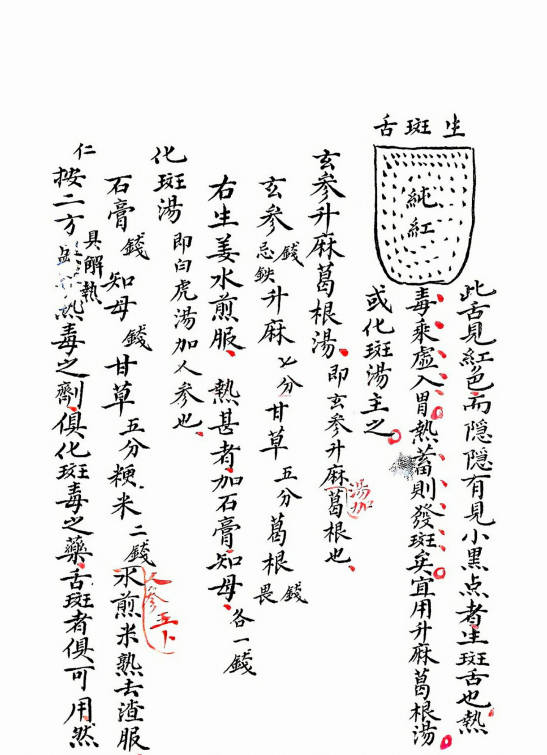 生斑舌
純紅
此舌見紅色而隠隠有見小黒点者生斑舌也熱
毒乘虛入胃熱蓄則發斑矣宜用升麻葛根湯
或化斑湯主之
玄参升麻葛根湯即玄参升麻湯加葛根也
玄参錢忌鉄升麻七分甘草五分葛根錢畏
右生姜水煎服熱甚者加石膏知母各一錢
化斑湯即白虎湯加人参也
石膏錢知母錢甘草五分粳米二錢人参五卜水煎米熟去渣服
仁按二方具解熱毒之劑俱化斑毒之藥舌斑者俱可用然